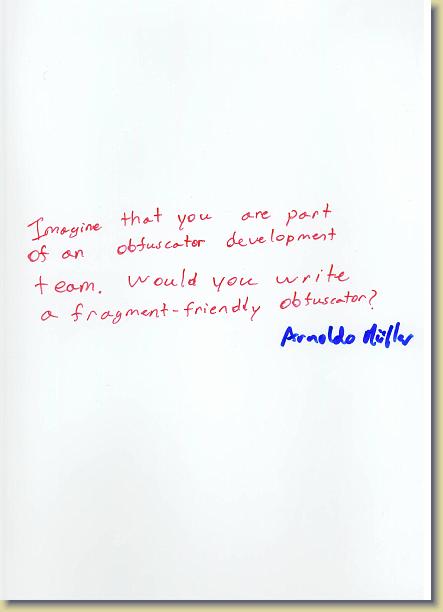 Imagine that you are part
of an obfuscator development
team. Would you write
a fragment-friendly obfuscator?
Arnoldo Müller